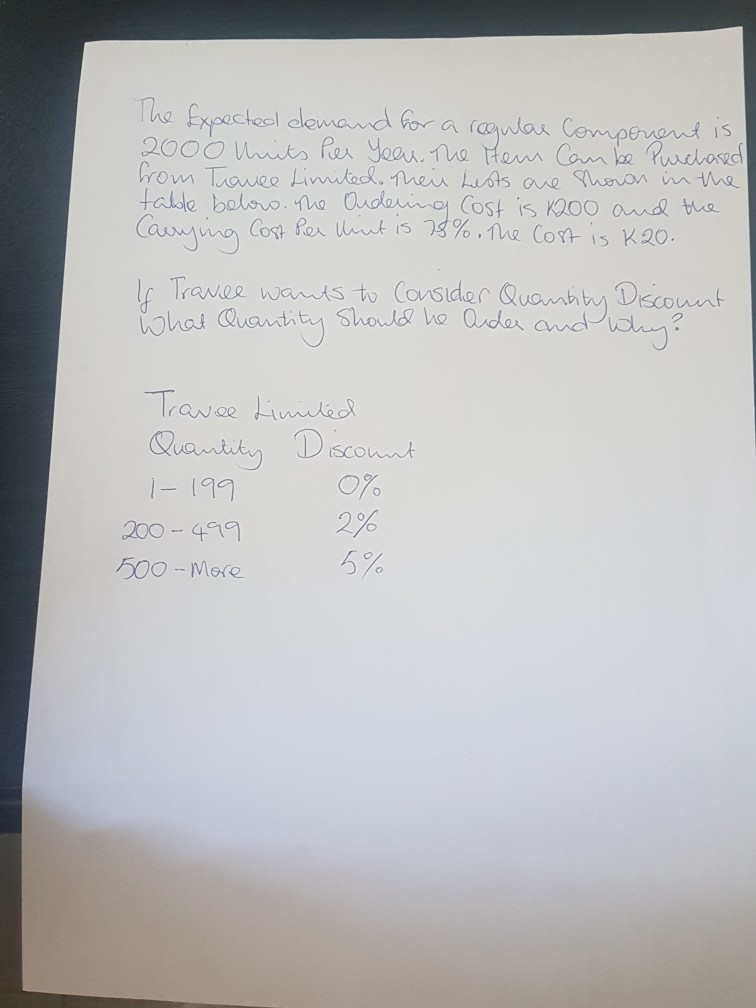 The Expected demand for a regular Component is
2000 Units Per Year. The Item Can be Purchased
from Travee Limited. Their Lists are Shown in the
table below. The Ordering Cost is K200 and the
Carrying Cost Per Unit is %. The Cost is K20.
If Travee wants to Consider Quantity Discount
What Quantity Should he Order and Why?
Travee Limited
Quantity Discount
1-199 0%
200-499 2%
500-More 5%